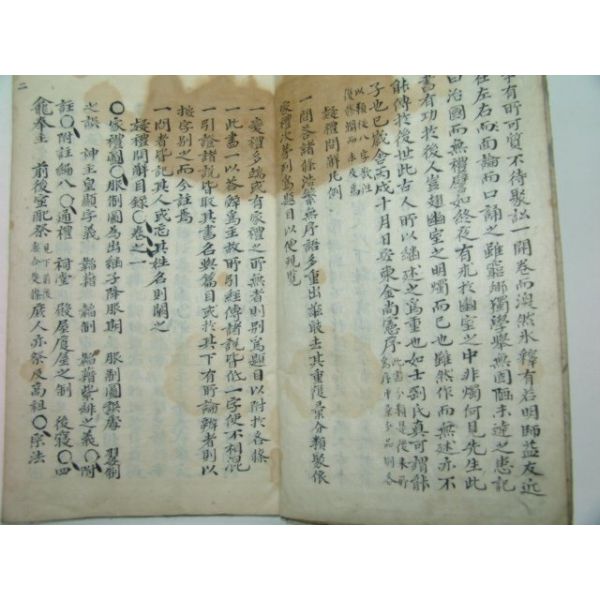 事有所可質不待聚訟一開卷而渙然氷釋有若明師益友近
在左右而面論而口誦之雖窮鄕獨學無固陋未達之患記
曰治國而無禮譬如終夜有求於幽室之中非燭何見先生此
書有功於後人豈趐幽室之明燭而已也雖然作而無述亦不
能傳於後世此古人所以繼述之爲重也如士劉氏真可謂能
子也已歲舍丙戌十月日安東金尙憲序
疑禮問解凡例
一問答諸條浩繁無序語多重出故敢去其重複彙分類聚依
家禮次第列爲題目以便觀覽
一變禮多端或有家禮之所無者則別爲題目以附於各條
一此書一以答辭爲主故所引經傳諸說皆低一字使不相混
一引證諸說皆取其書名與篇目或於其下有所論辨者則以
按字別之而分註焉
一問者皆記其人或忘其姓名則闕之
疑禮問解目錄〇卷之一
〇家禮圖〇服制圖爲出繼子降服期 服制圖誤處
之誤 神主皇顯字義 韜藉 韜制 韜藉紫緋之義〇附
註〇附註編入〇通禮 祠堂 殿屋廈屋之制 後寢〇四
龕奉主 前後室配祭 庶人亦祭及高祖〇宗法